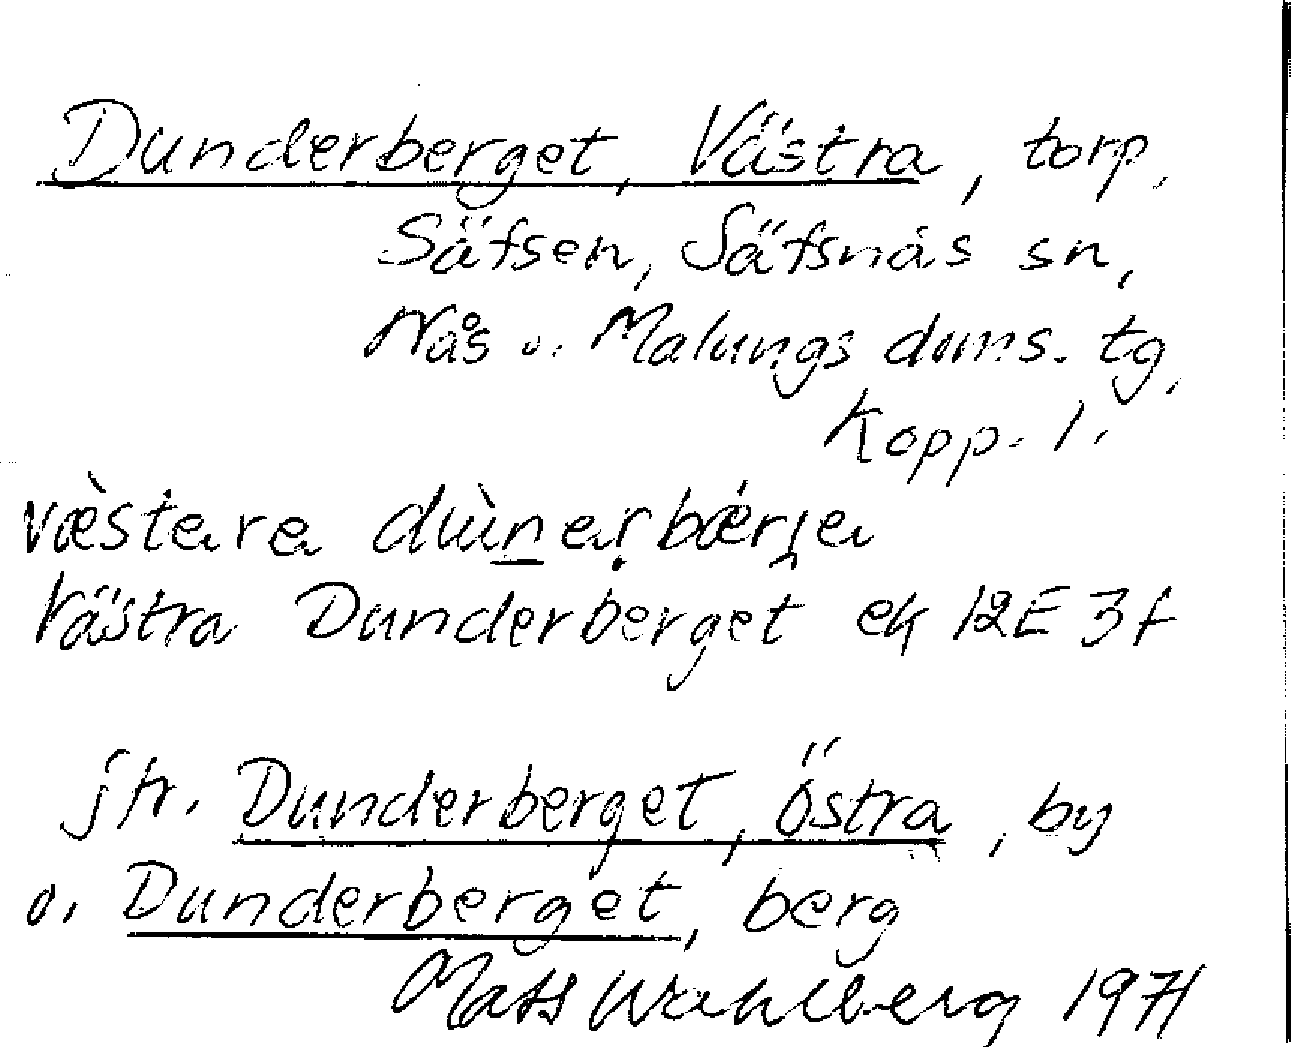 Dunderberget, Västra, torp,
Säfsen, Säfsnäs sn,
Nås o. Malungs doms. tg,
Kopp. l.
væ̀stara dùn̲ar̥bær̗ja
Västra Dunderberget ek 12E 3f
jfr. Dunderberget, Östra, by
o. Dunderberget, berg
Mats Wahlberg 1971